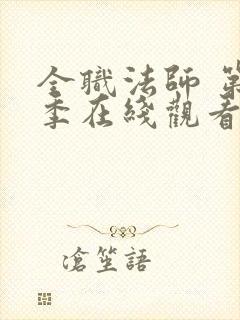 全職法師 第
季在綫觀看
滄笙語